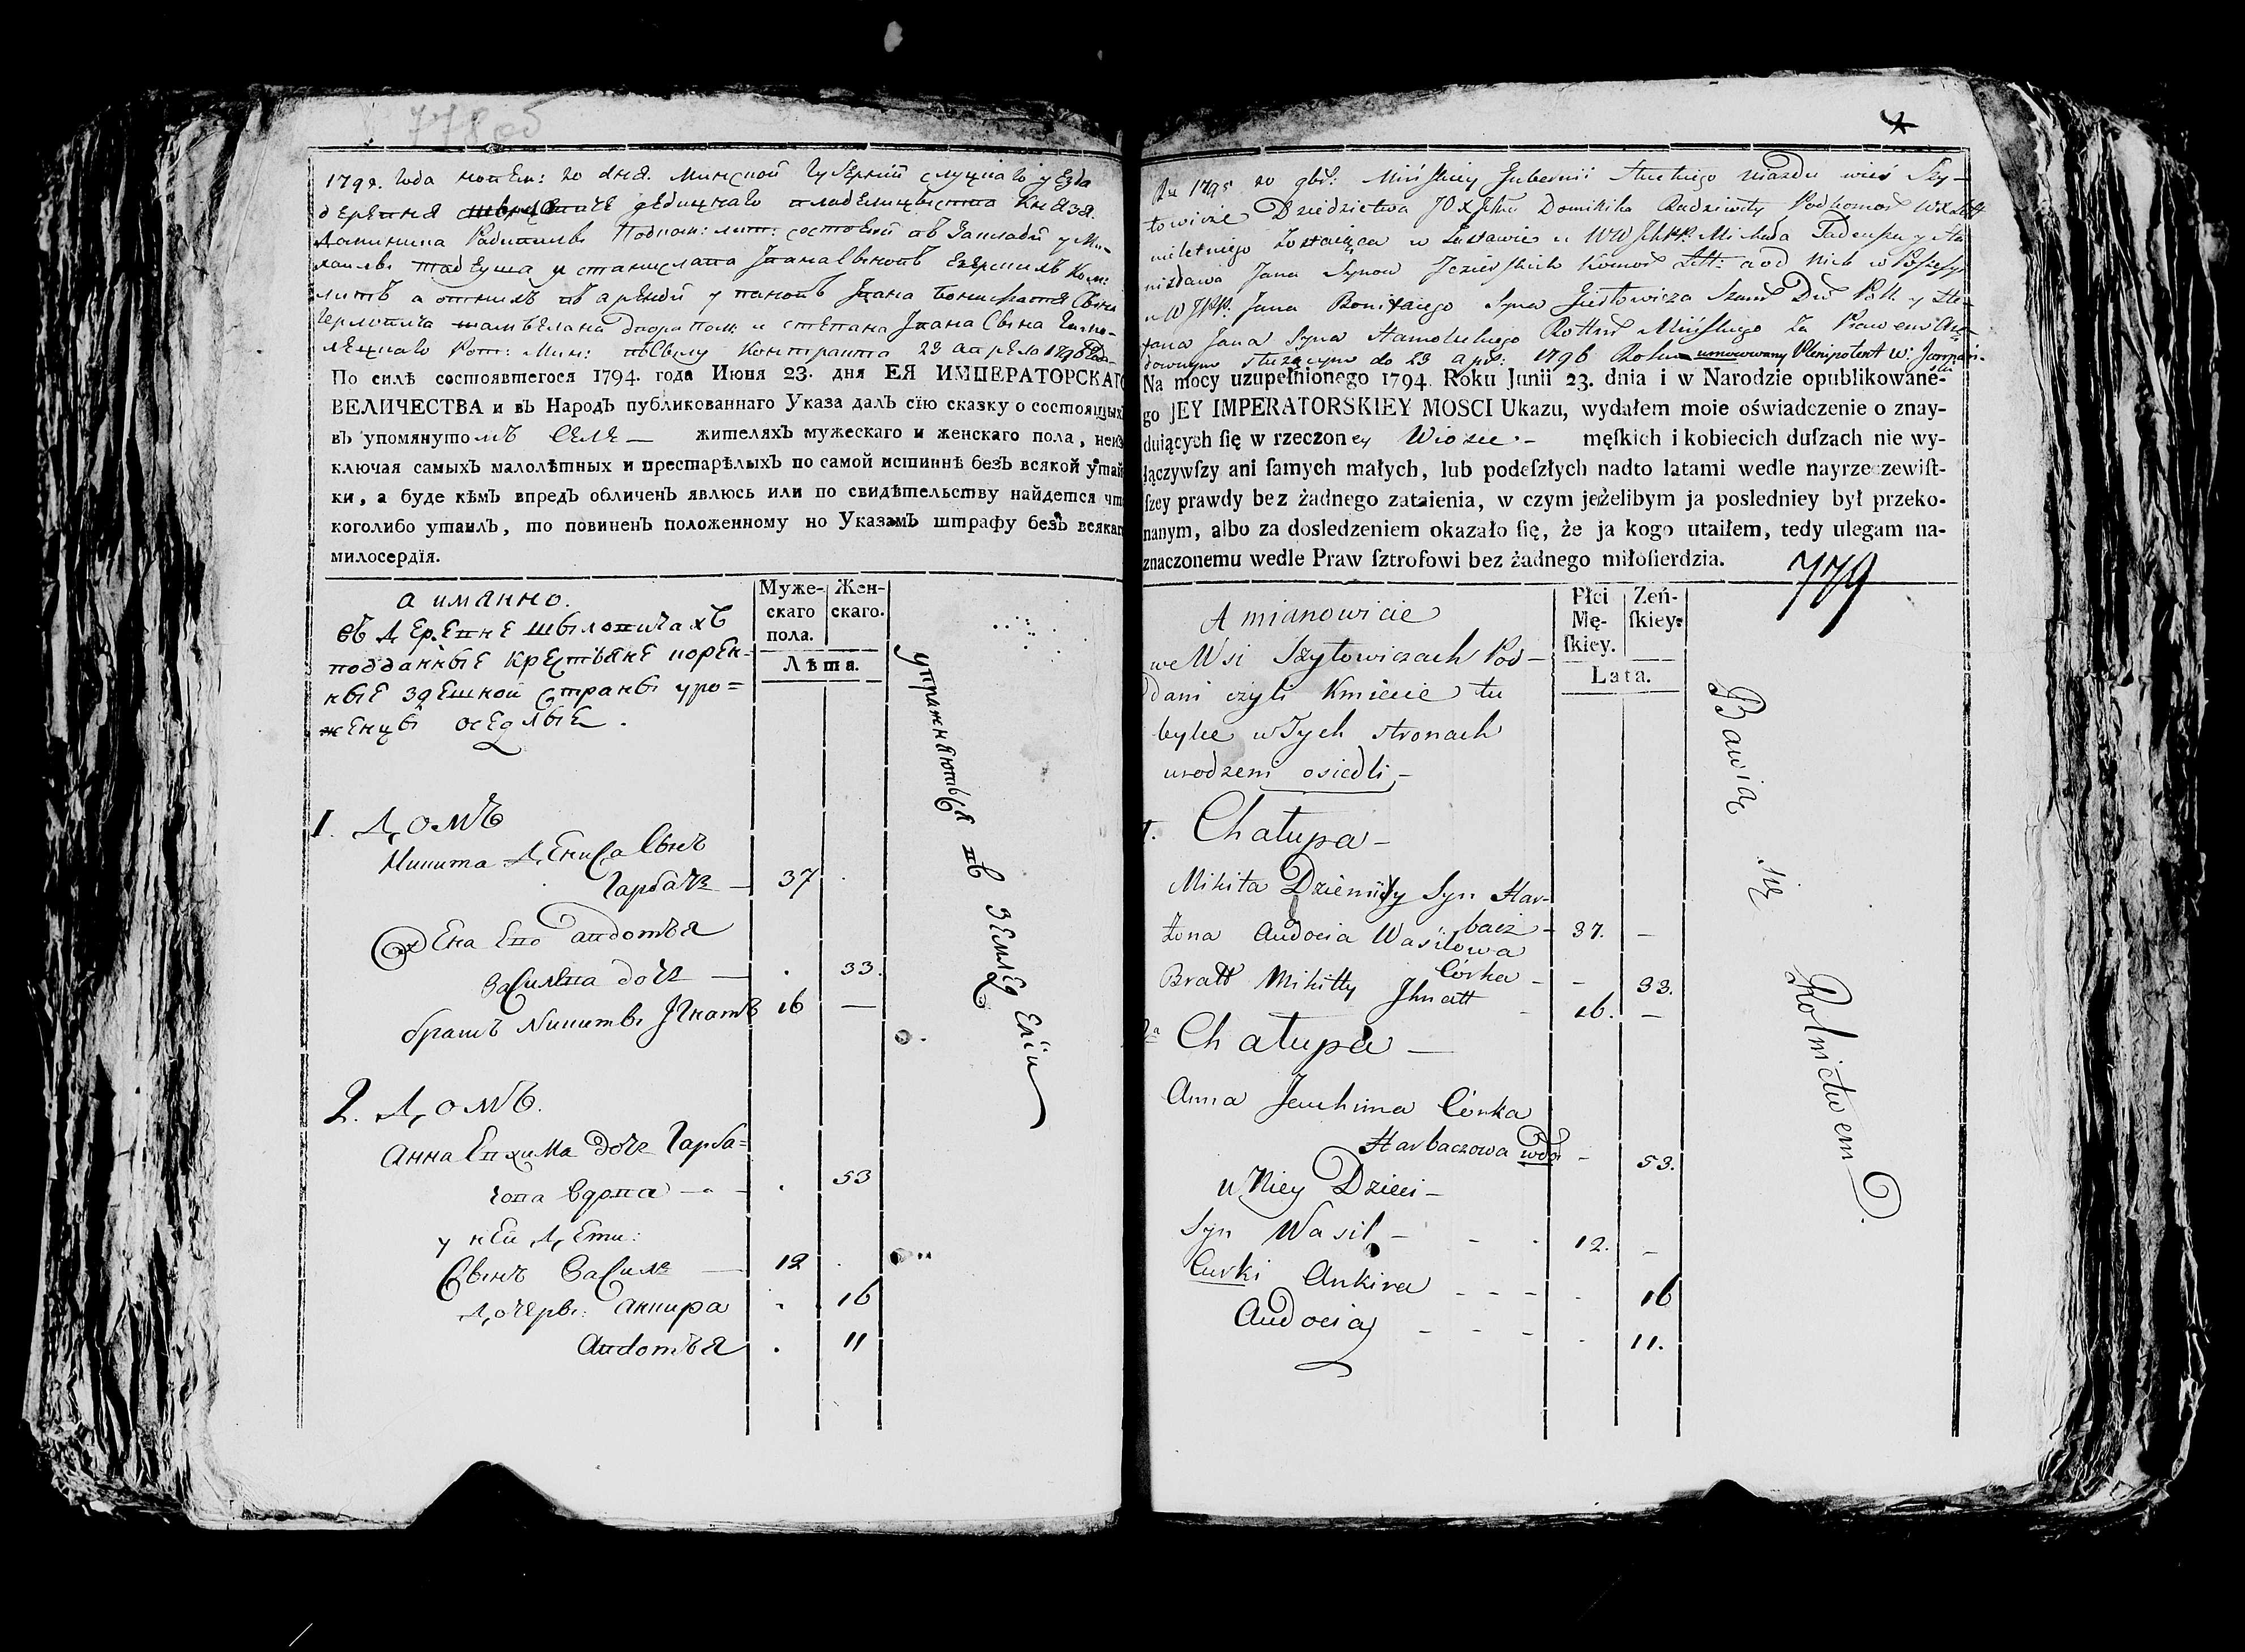 778 об
1795. года ноябр: 20 дня. Минской Губернии слуцкаго уезда
деревня дедицнаго владеницства Князя.
Доминика Радивилы Подком: лит: состоящой въ Заставы у Ми-
хаила Тадеуша и станислава Іванавыновъ
а отнихъ въ аренды у пановъ Іvана Бонифатя Сына
шамбеляна двора пол: и степана Іvана Сына
Рот: Мин: Контракта 23 апреля 1796
По силѣ состоявшегося 1794. года Июня 23. дня ЕЯ ИМПЕРАТОРСКАГО
ВЕЛИЧЕСТВА и въ Народъ публикованнаго Указа далъ сїю сказку о состоящихъ
въ упомянутомъ селе — жителяхъ мужескаго и женскаго пола, неиз
ключая самыхъ малолѣтных и престарѣлыхъ по самой истиннѣ безъ всякой утай
ки, а буде кѣмъ впредъ обличенъ явлюсь или по свидѣтельству найдется чт
коголибо утаилъ, то повиненъ положенному по Указамъ штрафу безъ всякаг
милосердїя.
а иманно.
въ деревне шыловичахъ
подданные крестьяне корен-
ные здешной страны уро=
женцы оседлые.
Муже-
скаго
пола.
Жен-
скаго.
Лѣта.
упражняються въ земледелїи
1. Домъ
Микита Дениса Сынъ
Гарбачь — 37
Жена Ево авдотья
василева дочь — 33.
братъ Микиты Ігнатъ 16 —
2. Домъ.
Анна Евхима дочь Гарба=
чова вдова — 53
у ней Дети:
Сынъ василь — 12
Дочеры: анкира 16
авдотья 11
Ru 1795 20 gbr: Mińskiey Gubernii Słuckiego uiazdu wieś Szy-
łowicze Dziedzictwa JOXJcha Dominika Radziwiłły Podkomor WXLitt
nieletniego zostaiąca w zastawie u WWJchPP. Michała Tadeusza y Sta
nisława Jana Synow Jezierskich Komor Litt: a od nich w Possesyi
u WJPP. Jana Bonifacego Syna Giedłowicza Szamb Dw Poll y Ste-
fana Jana Syna Hamolickiego Rottm Mińskiego za Prawem Aren-
downym służącym do 23 apr: 1796 Roku umocowany Plenipotent w:
Na mocy uzupełnionego 1794 Roku Junii 23. dnia i w Narodzie opublikowane-
go JEY IMPERATORSKIEY MOSCI Ukazu, wydałem moie oświadczenie o znay-
duiących ſię w rzeczoney Wiosce — męſkich i kobiecich duſzach nie wy-
łączywſzy ani ſamych małych, lub podeſzłych nadto latami wedle nayrzeczewiſt-
ſzey prawdy bez żadnego zataienia, w czym jeżelibym ja posledniey był przeko-
nanym, albo za dosledzeniem okazało ſię, że ja kogo utaiłem, tedy ulegam na-
znaczonemu wedle Praw ſztrofowi bez żadnego miłoſierdzia.
779
A mianowicie
we Wsi Szyłowiczach Pod-
dani czyli Kmiecie tu
bylce w Tych stronach
urodzeni osiedli —
Płci
Mę-
ſkiey.
Zeń-
ſkiey.
Lata.
Bawią się Rolnictwem
1. Chałupa —
Mikita Dzienisy Syn Har-
bacz — 37. —
Żona Audocia Wasilowa
Córka — — 33.
Bratt Mikitty Jhnatt 16. —
2a Chałupa —
Anna Jauchima Córka
Harbaczowa wdo: — 53.
u Niey Dzieci —
Syn Wasil — 12. —
Curki Ankira 16
Audocia 11.